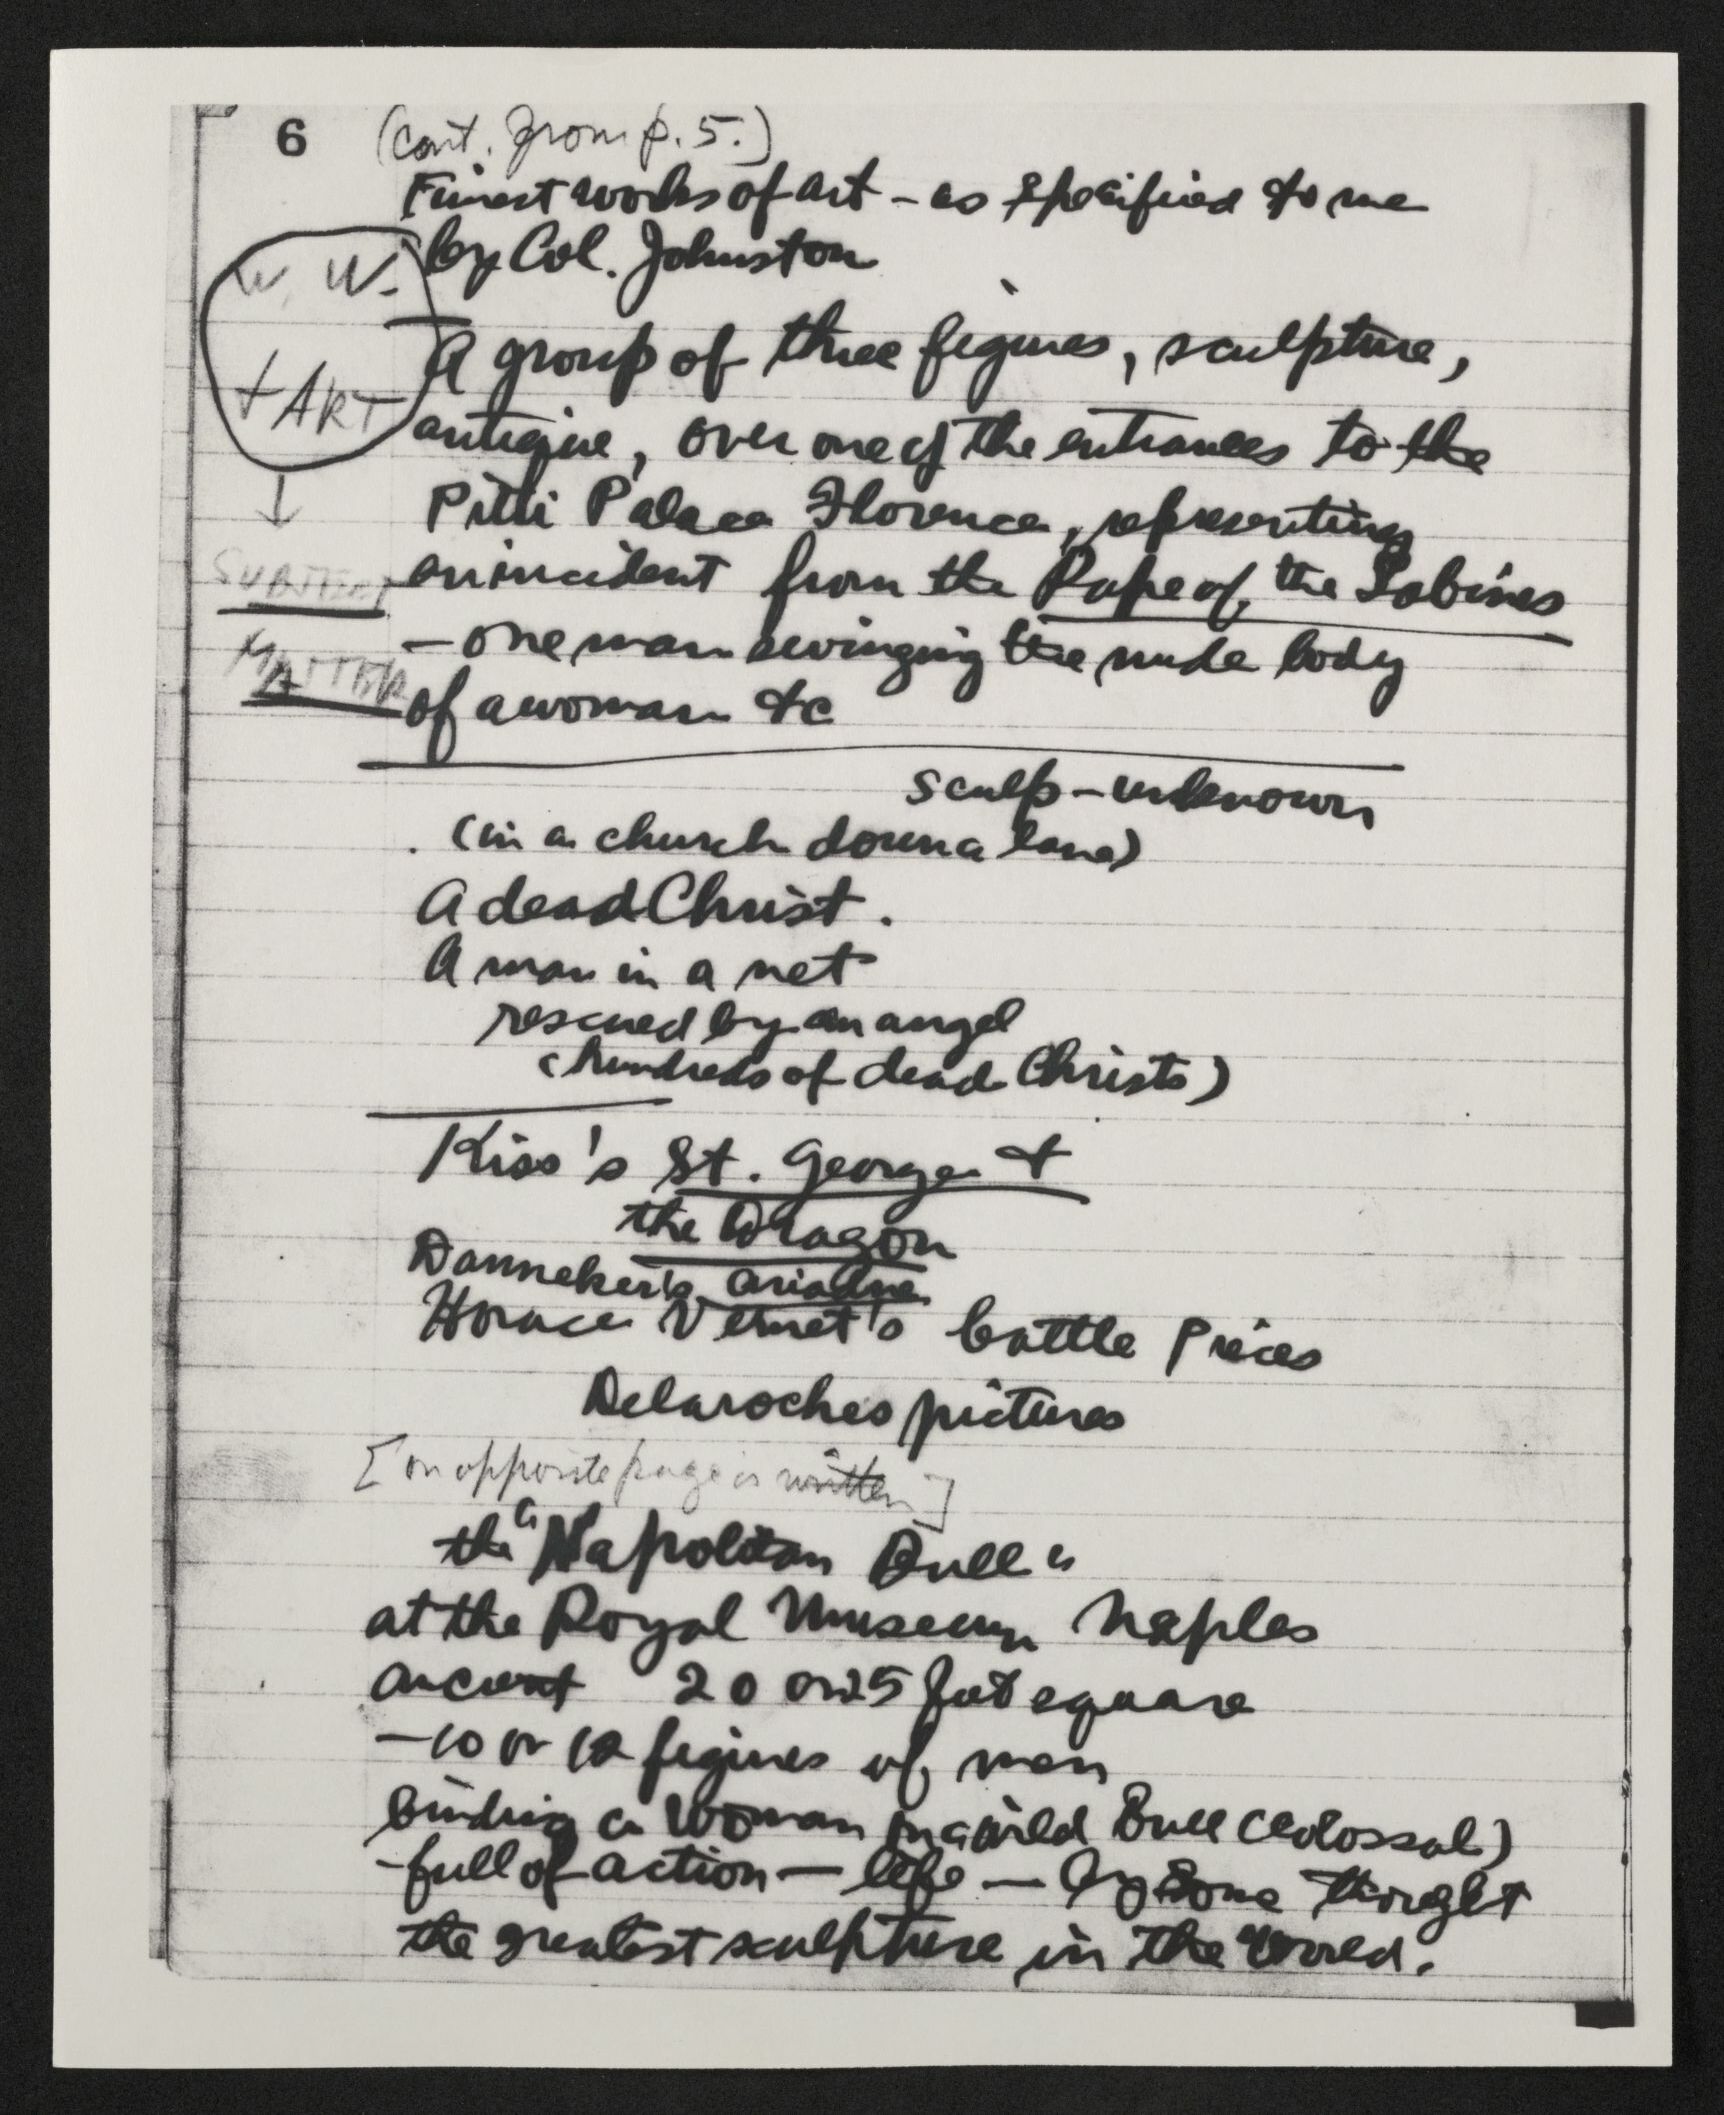 6 (cont. from p. 5.)
Finest works of art - as specified to me
by Col. Johnston
W. W.
+ ART
↓
SUBJECT
MATTER
A group of three figures, sculpture,
antique, over one of the entrances to the
Pitti Palace Florence, representing
an incident from the Rape of the Sabines
- one man swinging the nude body
of a woman &c
sculp - unknown
(in a church down a lane)
A dead Christ.
A man in a net
rescued by an angel
(hundreds of dead Christs)
Kiss's St. George &
the Dragon
Danneker's Ariadne
Horace Vernet's battle Pieces
Delaroches pictures
[on opposite page is written]
the "Napolitan Bull"
at the Royal Museum Naples
ancient 20 or 25 feet square
- 10 or 12 figures of men
binding a woman on a wild Bull (colossal)
- full of action - life - by some thought
the greatest sculpture in the world.